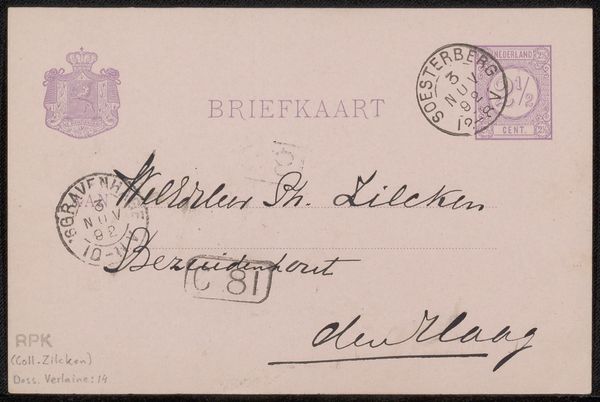 NEDERLAND
2½
CENT.
SOESTERBERG
3
NOV
92
12-8V
BRIEFKAART
'SGRAVENHAGE
3
NOV
92
10-11
AAN
WelEdheer Ph. Zilcken
Bezuidenhout
C 81
den Haag
RPK
(Coll. Zilcken)
Doss. Verlaine: 14